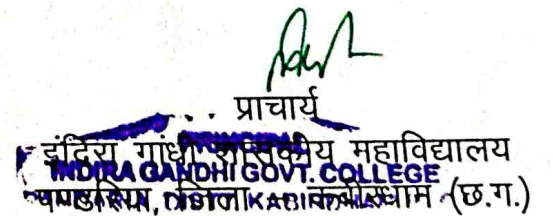 प्राचार्य
इंदिरा गांधी शासकीय महाविद्यालय
INDIRA GANDHI GOVT. COLLEGE
पण्डरिया, जिला - कबीरधाम (छ.ग.)